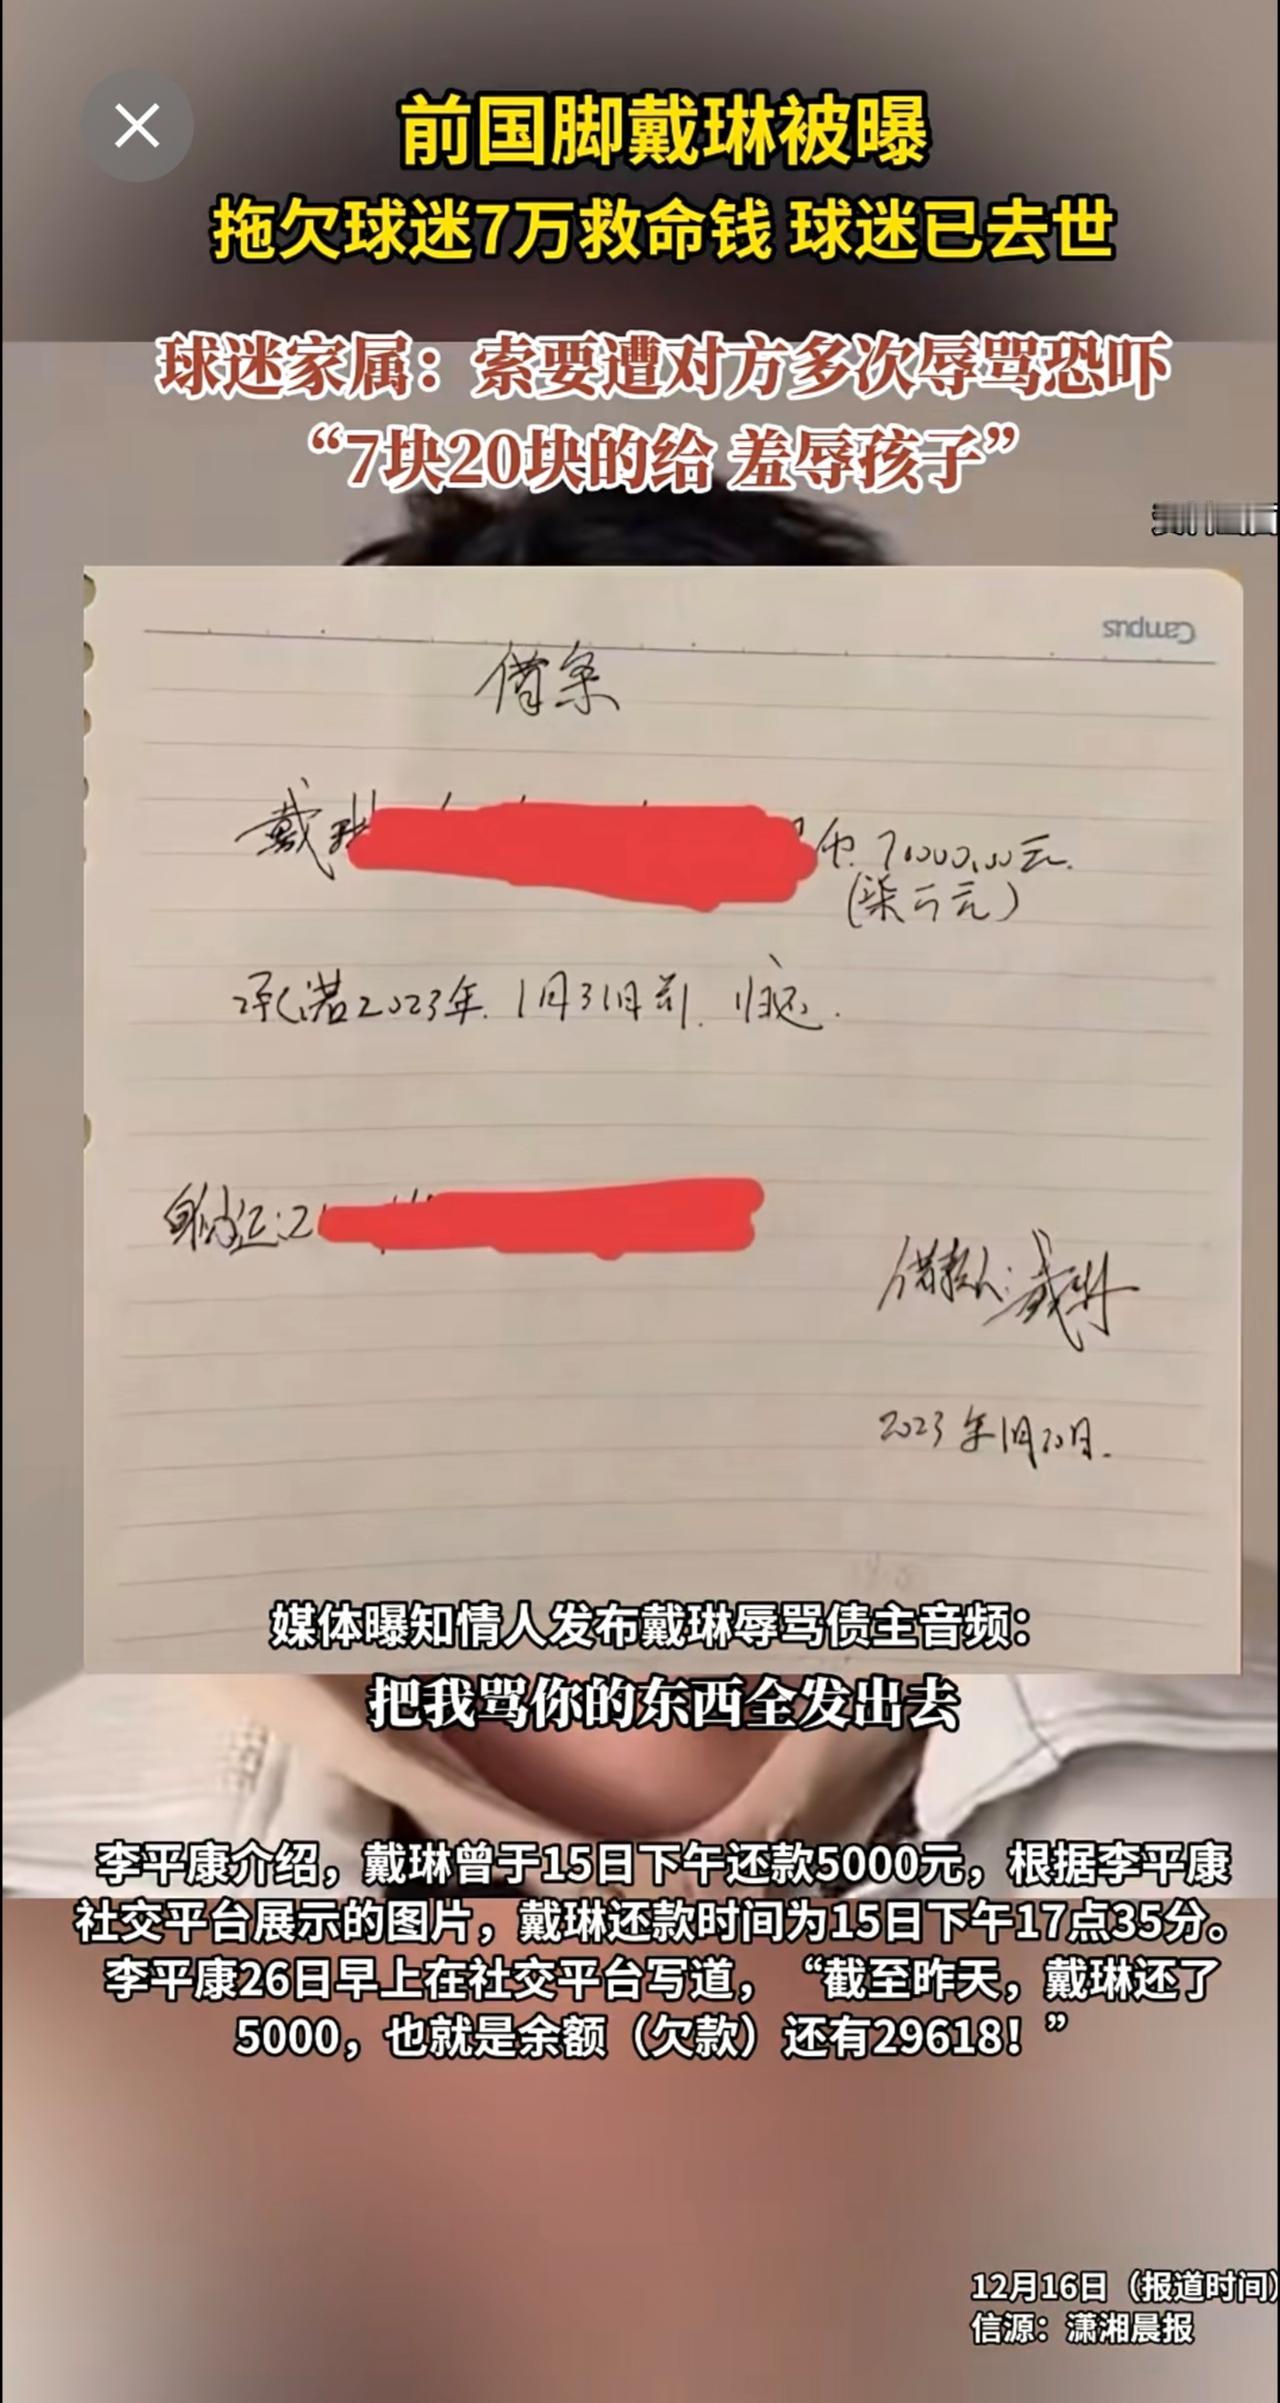 前国脚戴琳被曝
拖欠球迷7万救命钱 球迷已去世
球迷家属：索要遭对方多次辱骂恐吓
“7块20块的给 羞辱孩子”
Campus
借条
戴琳 币 70000.00元.
(柒万元)
承诺2023年.1月31日前.归还.
身份证:2
借款人:戴琳
2023年1月20日.
媒体曝知情人发布戴琳辱骂债主音频：
把我骂你的东西全发出去
李平康介绍，戴琳曾于15日下午还款5000元，根据李平康
社交平台展示的图片，戴琳还款时间为15日下午17点35分。
李平康26日早上在社交平台写道，“截至昨天，戴琳还了
5000，也就是余额（欠款）还有29618！”
12月16日（报道时间）
信源：潇湘晨报